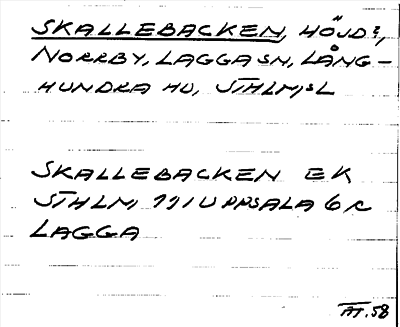 SKALLEBACKEN, HÖJD?,
NORRBY, LAGGA SN, LÅNG-
HUNDRA HD, STHLMSL
SKALLEBACKEN EK
STHLM, 111 UPPSALA 6 C
LAGGA
AT. 58